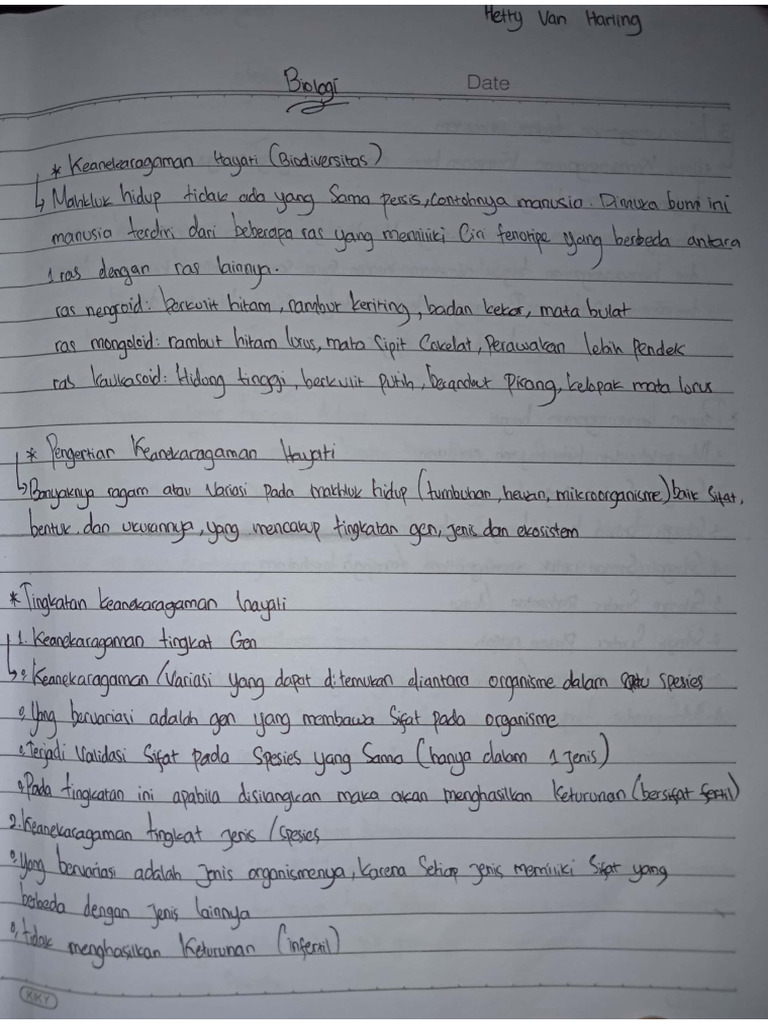 Hetty Van Harling
Biologi
Date
* Keanekaragaman Hayati (Biodiversitas)
↳ Mahkluk hidup tidak ada yang Sama persis, Contohnya manusia. Dimuka bumi ini
manusia terdiri dari beberapa ras yang memiliki Ciri fenotipe yang berbeda antara
1 ras dengan ras lainnya.
ras nengroid: berkulit hitam, rambut keriting, badan kekar, mata bulat
ras mongoloid: rambut hitam lurus, mata Sipit Cokelat, Perawakan lebih Pendek
ras kaukasoid: Hidong tinggi, berkulit putih, Pirang, kelopak mata lurus
* Pengertian Keanekaragaman Hayati
↳ Banyaknya ragam atau Variasi pada makhluk hidup (tumbuhan, hewan, mikroorganisme) baik Sifat,
bentuk dan ukurannya, yang mencakup tingkatan gen, jenis dan ekosistem
* Tingkatan keanekaragaman hayati
1. Keanekaragaman tingkat Gen
↳ • Keanekaragaman / Variasi yang dapat ditemukan diantara organisme dalam satu spesies
• Yang bervariasi adalah gen yang membawa Sifat pada organisme
• Terjadi Validasi Sifat pada Spesies yang Sama (hanya dalam 1 Jenis)
• Pada tingkatan ini apabila disilangkan maka akan menghasilkan keturunan (bersifat fertil)
2. Keanekaragaman tingkat jenis / Spesies
• Yang bervariasi adalah Jenis organismenya, Karena Setiap jenis memiliki Sifat yang
berbeda dengan jenis lainnya
• tidak menghasilkan Keturunan (infertil)
KKY